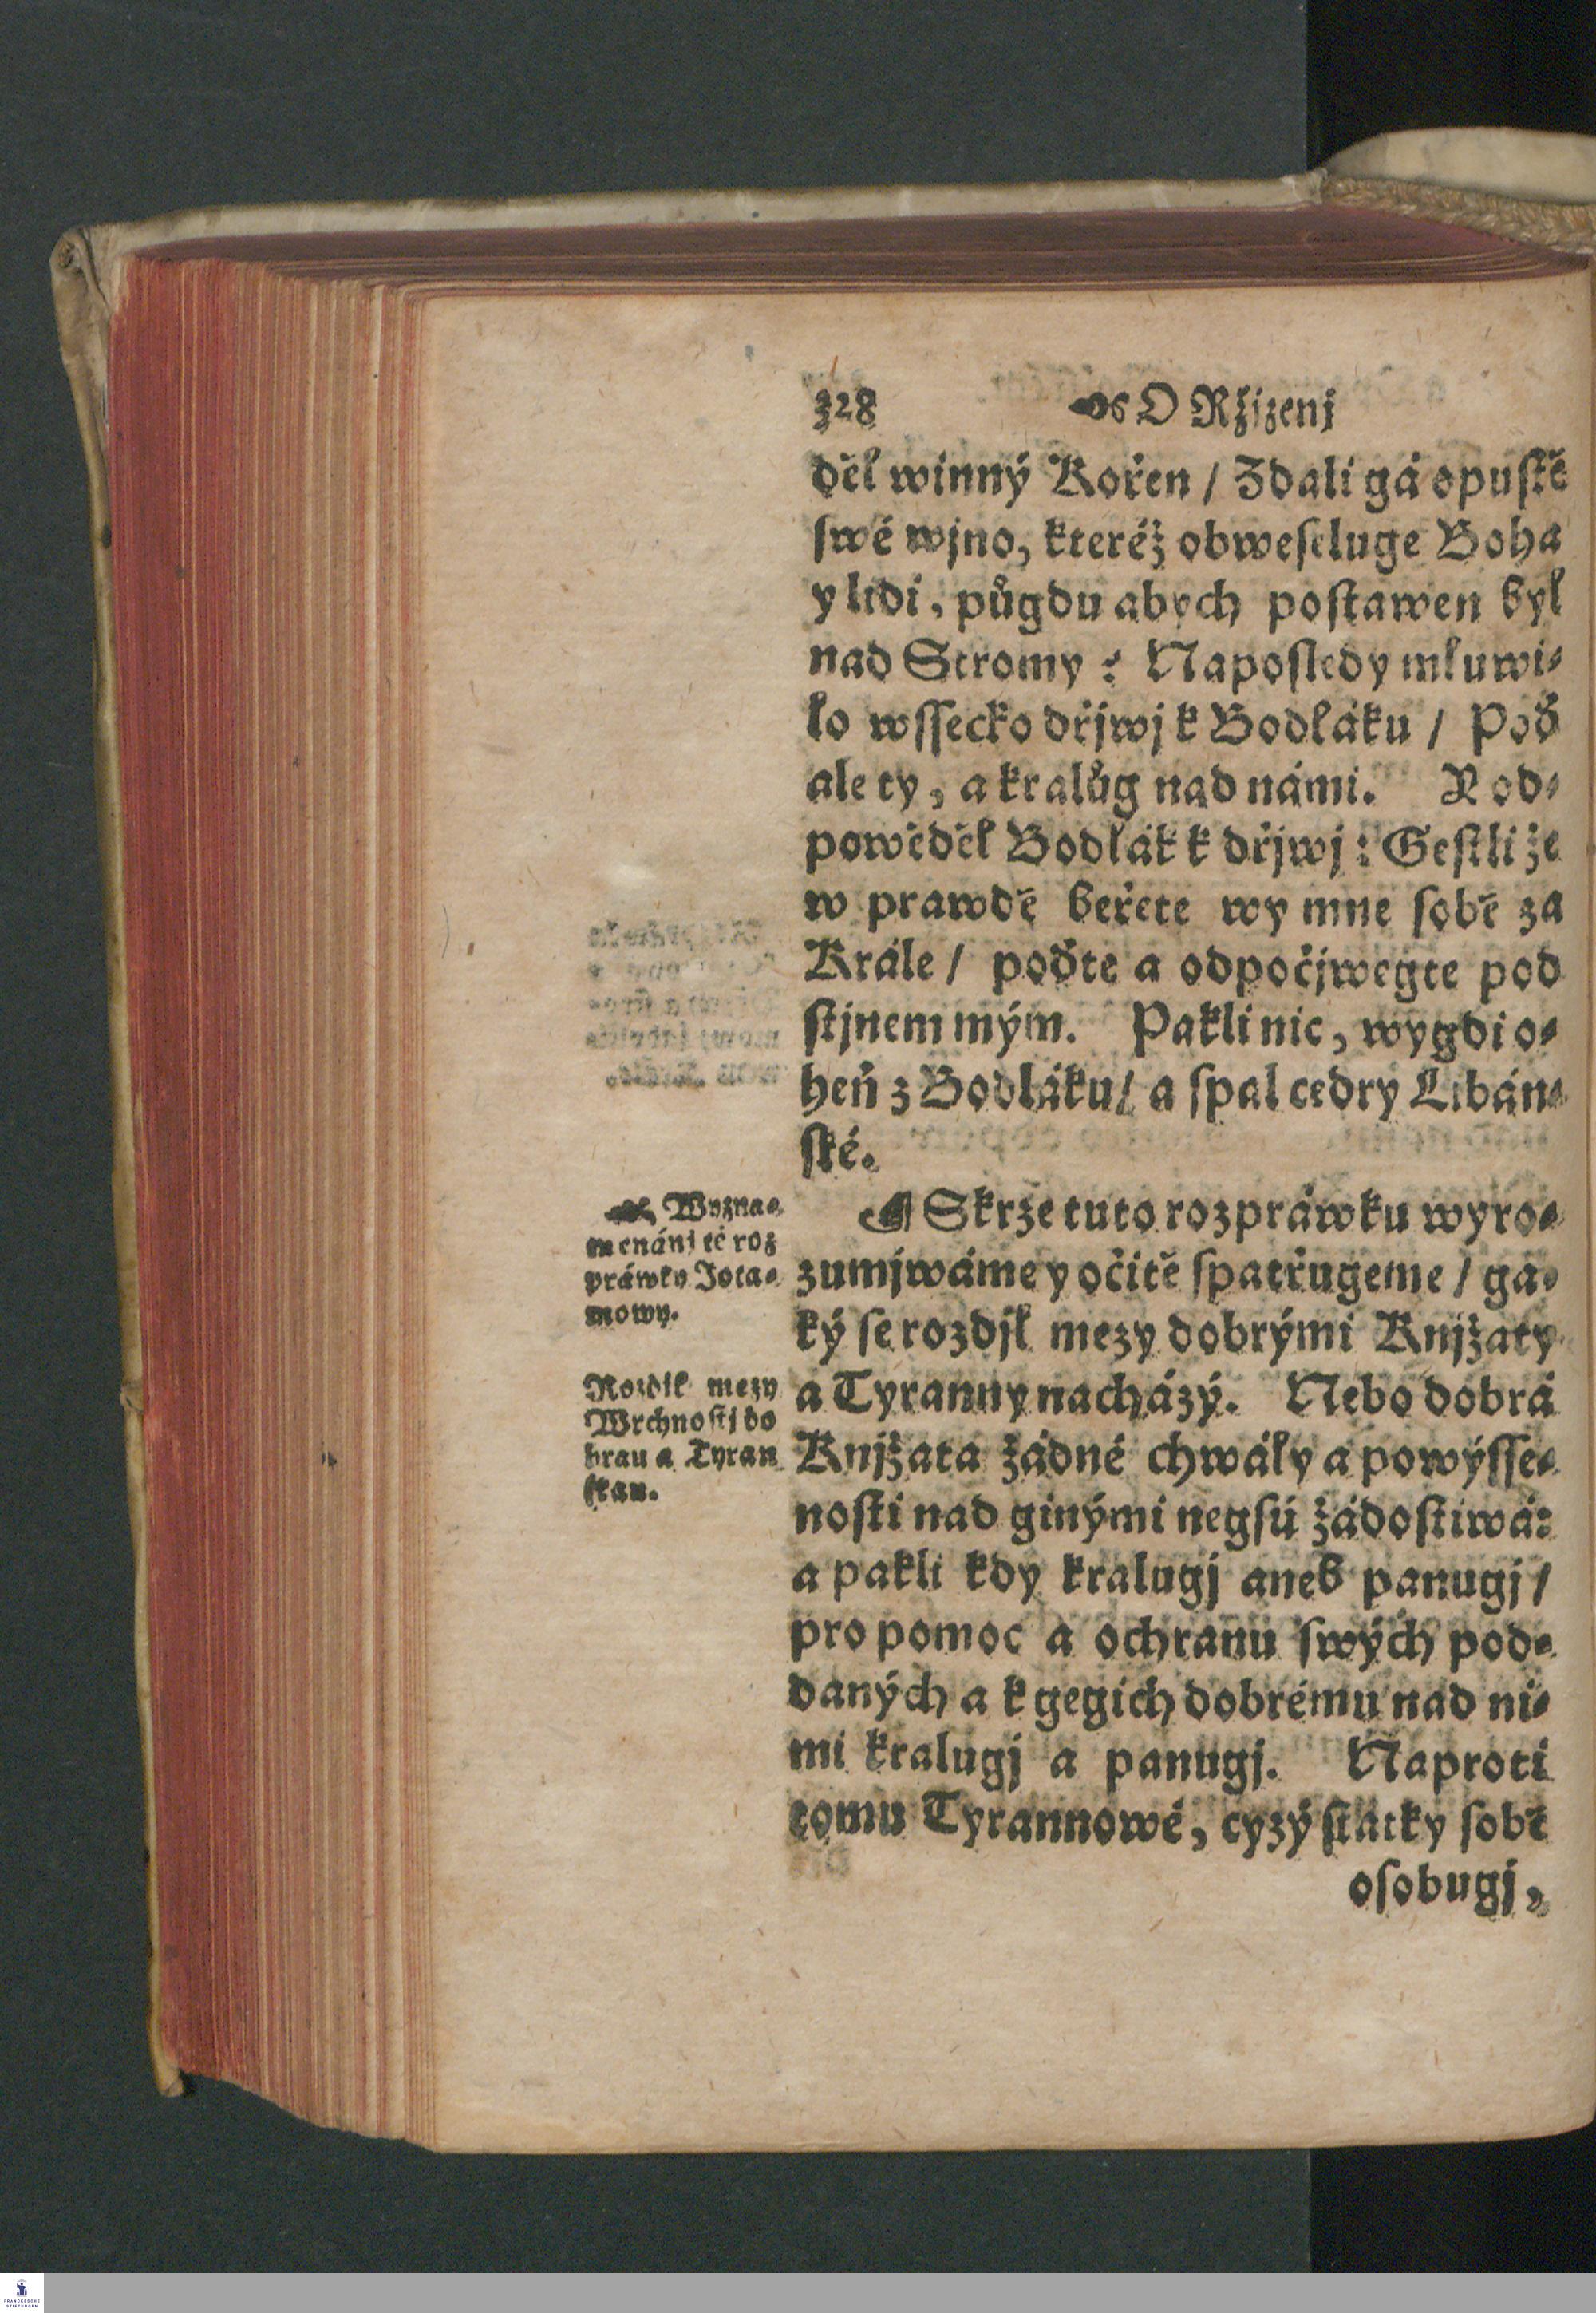 328 O Ržizenj
děl winný Kořen / Zdali gá opustě
swé wjno, kteréž obweseluge Boha
y lidi, půgdu abych postawen byl
nad Stromy? Naposledy mluwi-
lo wssecko dřjwj k Bodláku / Poď
ale ty, a kralůg nad námi. Y od-
powěděl Bodlák k dřjwj: Gestliže
w prawdě beřete wy mne sobě za
Krále / poďte a odpočjwegte pod
stjnem mým. Pakli nic, wygdi o-
heň z Bodláku / a spal cedry Libán-
ské.
Skrze tuto rozpráwku wyro-
zumjwáme y očitě spatřugeme / ga-
ký se rozdjl mezy dobrými Knjžaty
a Tyranny nacházý. Nebo dobrá
Knjžata žádné chwály a powýsse-
nosti nad ginými negsú žádostiwá:
a pakli kdy kralugj aneb panugj /
pro pomoc a ochranu swých pod-
daných a k gegich dobrému nad ni-
mi kralugj a panugj. Naproti
tomu Tyrannowé, cyzý statky sobě
osobugj,
Wyzna-
menánj té roz
práwky Jota-
mowy.
Rozdjl mezy
Wrchnostj do
brau a Tyran
skau.
FRANCKESCHE
STIFTUNGEN